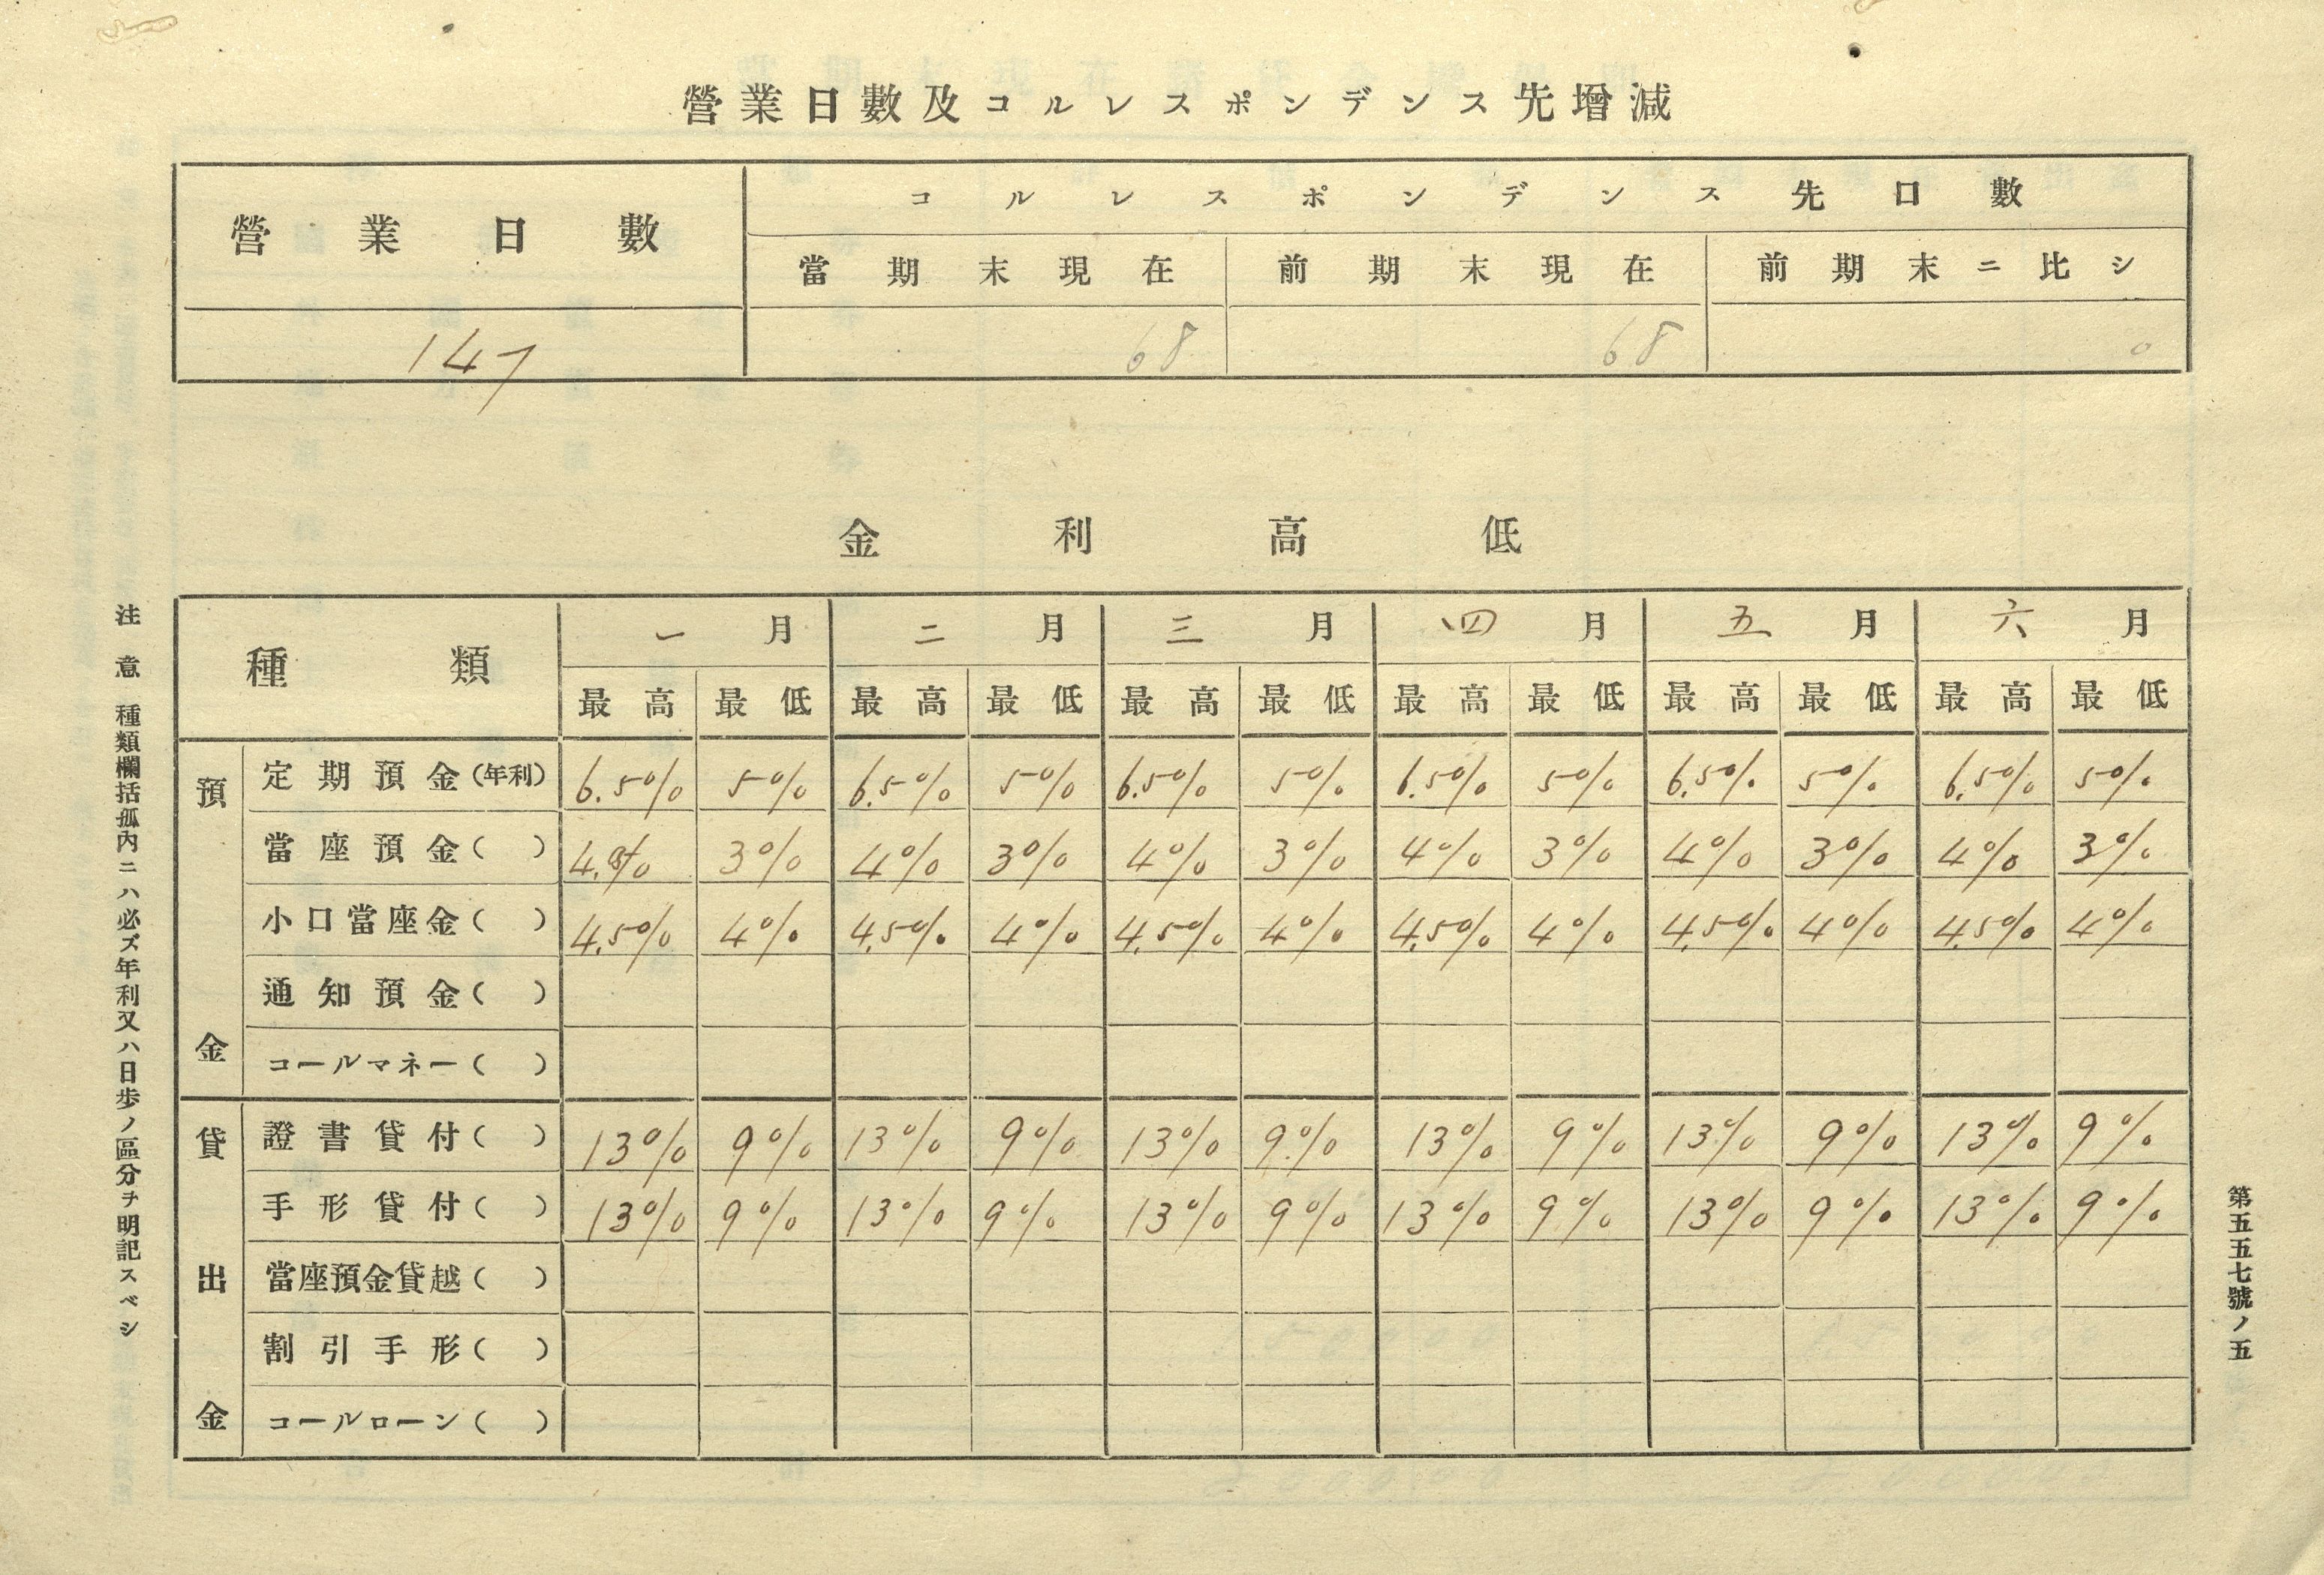 營業日數及コルレスポンデンス先增減
營業日數 コルレスポンデンス先口數
當期末現在 前期末現在 前期末ニ比シ
147 68 68 0
金利高低
種類 一月 二月 三月 四月 五月 六月
最高 最低 最高 最低 最高 最低 最高 最低 最高 最低 最高 最低
預金
定期預金(年利) 6.5% 5% 6.5% 5% 6.5% 5% 6.5% 5% 6.5% 5% 6.5% 5%
當座預金( ) 4.% 3% 4% 3% 4% 3% 4% 3% 4% 3% 4% 3%
小口當座金( ) 4.5% 4% 4.5% 4% 4.5% 4% 4.5% 4% 4.5% 4% 4.5% 4%
通知預金( )
コールマネー( )
貸出金
證書貸付( ) 13% 9% 13% 9% 13% 9% 13% 9% 13% 9% 13% 9%
手形貸付( ) 13% 9% 13% 9% 13% 9% 13% 9% 13% 9% 13% 9%
當座預金貸越( )
割引手形( )
コールローン( )
注意 種類欄括孤内ニハ必ズ年利又ハ日歩ノ區分ヲ明記スベシ
第五五七號ノ五